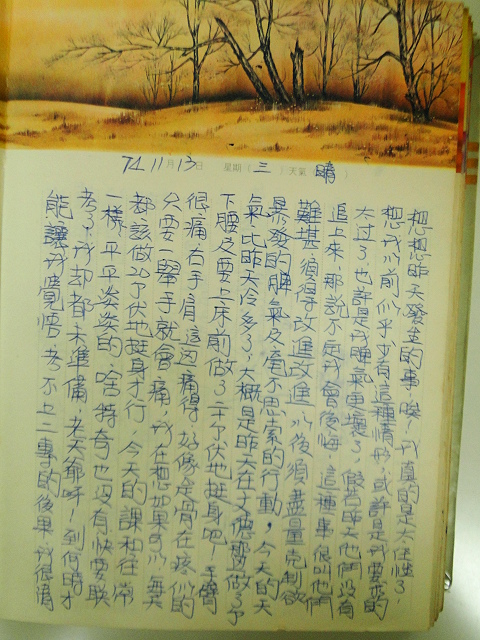 74 11月13日 星期(三)天氣(晴)
想想昨天發生的事,唉!我真的是太任性了,
想我以前似乎少有這種情形,或許是我要求的
太過了,也許是我脾氣更壞了,假若昨天他們沒有
追上來,那說不定我會後悔,這種事很叫他們
難堪,須得改進改進,以後須儘量克制欲
暴發的脾氣及毫不思索的行動,今天的天
氣比昨天冷多了,大概是昨天在丁德鳳做了
下腰及要上床前做了二十下伏地挺身吧!手臂
很痛,右手肩這邊痛得好像是骨在疼似的
只要一舉手就會痛,我在想如果可以每天
都該做20下伏地挺身才行,今天的課和往常
一樣,平平淡淡的,啥特奇也沒有,快要聯
考了,我卻都未準備,老天爺呀!到何時才
能讓我覺悟,考不上二專的後果,我很清